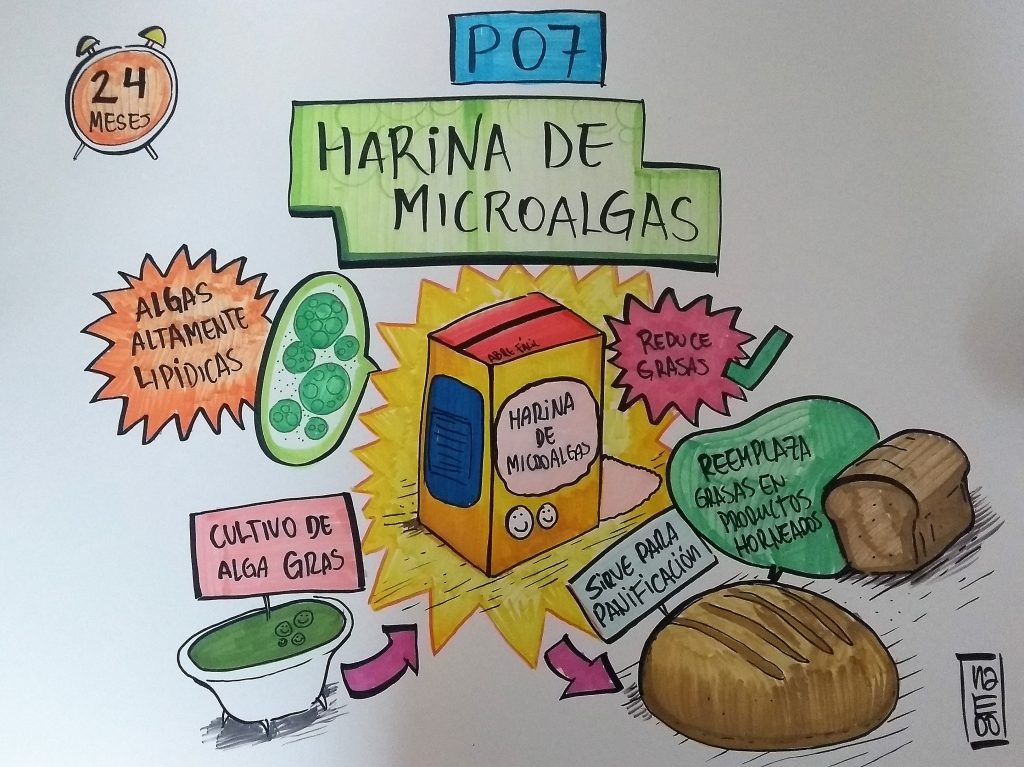 24
MESES
P07
HARINA DE
MICROALGAS
ALGAS
ALTAMENTE
LIPÍDICAS
REDUCE
GRASAS
ABRE FÁCIL
HARINA
DE
MICROALGAS
REEMPLAZA
GRASAS EN
PRODUCTOS
HORNEADOS
CULTIVO DE
ALGA GRAS
SIRVE PARA
PANIFICACIÓN